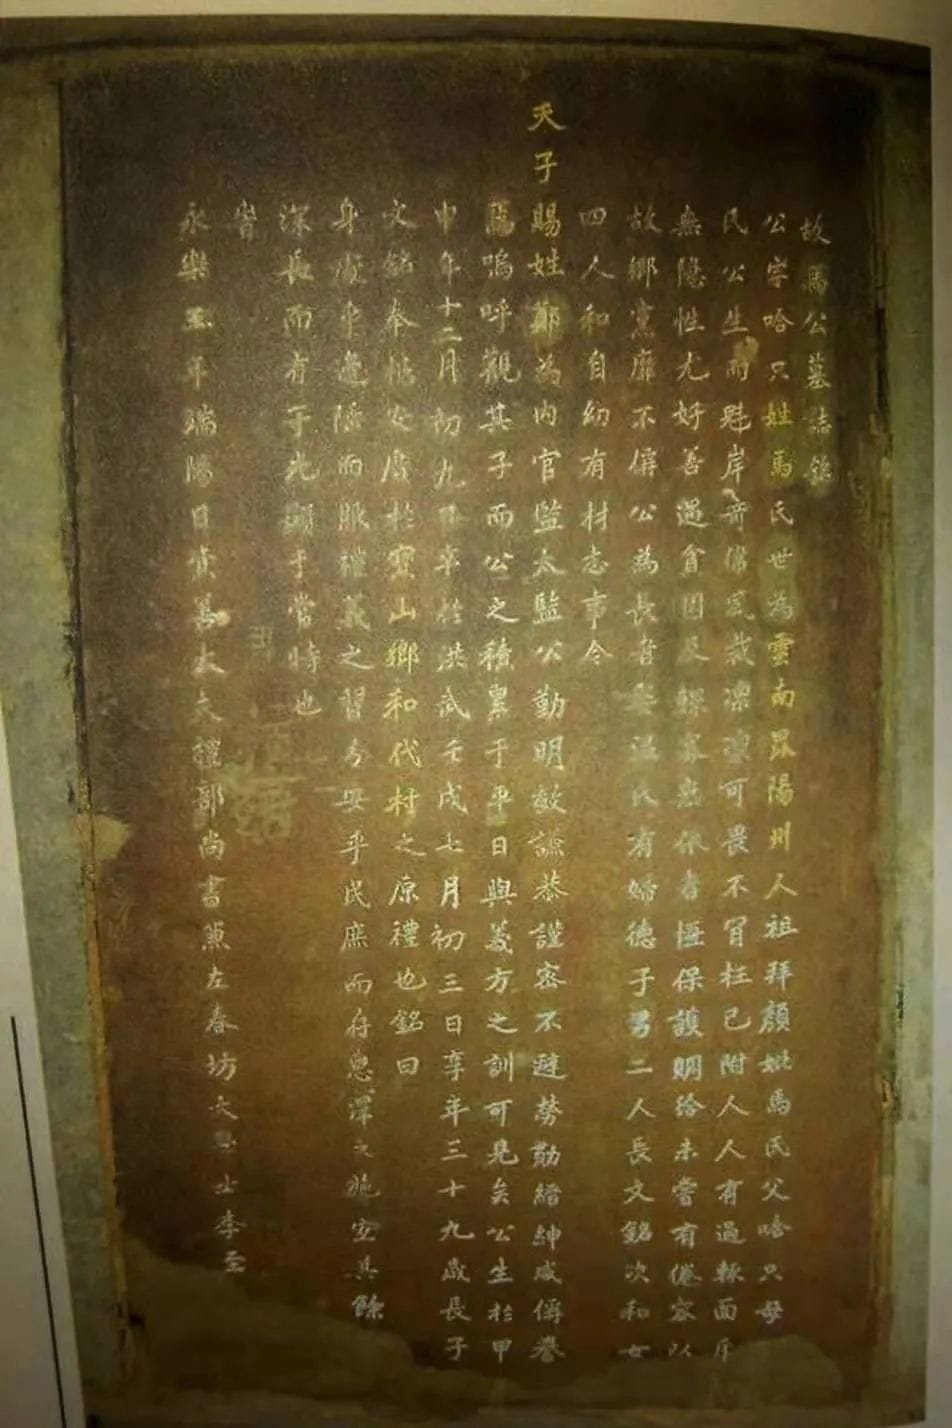 故馬公墓誌銘
公字哈只姓馬氏世為雲南昆陽州人祖拜顏妣馬氏父哈只母
氏公生而魁岸奇偉風裁凜凜可畏不肯枉己附人人有過輒面斥
無隱性尤好善遇貧困及鰥寡無依者恒保護賙給未嘗有倦容以
故鄉黨靡不偁公為長者娶溫氏有婦德子男二人長文銘次和女
四人和自幼有材志事今
天子賜姓鄭為內官監太監公勤明敏謙恭謹密不避勞勩縉紳咸偁譽
焉嗚呼觀其子而公之積累于平日與義方之訓可見矣公生於甲
申年十二月初九日卒於洪武壬戌七月初三日享年三十九歲長子
文銘奉柩安厝於寶山鄉和代村之原禮也銘曰
身處乎邊陲而服禮義之習分安乎民庶而存惠澤之施宜其餘
深長而有子光顯于當時也
皆
永樂三年端陽日資善大夫禮部尚書兼左春坊大學士李至